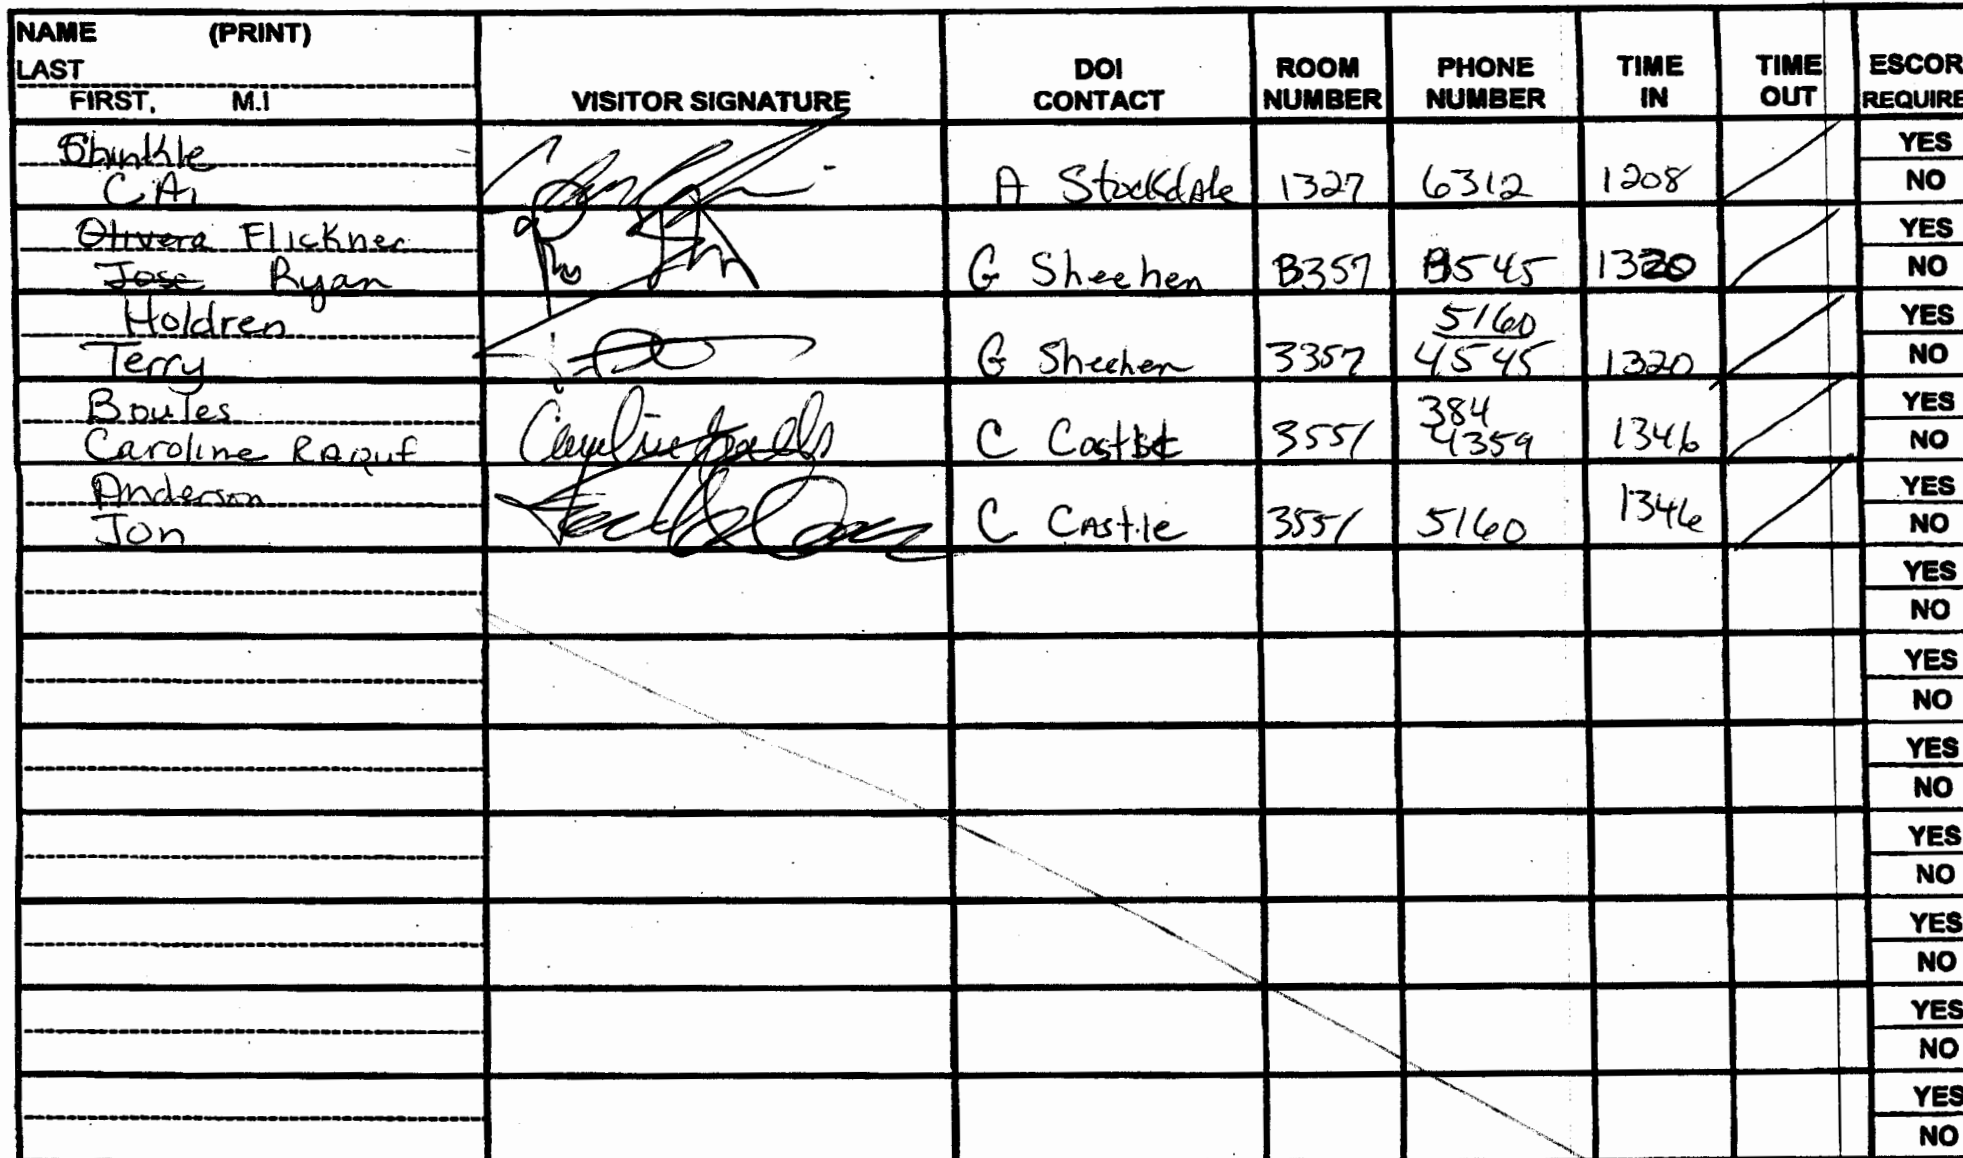 NAME (PRINT)
LAST
FIRST, M.I
VISITOR SIGNATURE
DOI CONTACT
ROOM NUMBER
PHONE NUMBER
TIME IN
TIME OUT
ESCOR REQUIRE
Shinkle
A Stockdale 1327 6312 1208
YES
NO
Olivera Flickner
Jose Ryan
G Sheehen B357 1320
YES
NO
Holdren
Terry
G Sheehen 3357 5160 4545 1320
YES
NO
Boules
Caroline Raouf
C 3551 384 4359 1346
YES
NO
Anderson
Jon
C Castle 3551 5160 1346
YES
NO
YES
NO
YES
NO
YES
NO
YES
NO
YES
NO
YES
NO
YES
NO